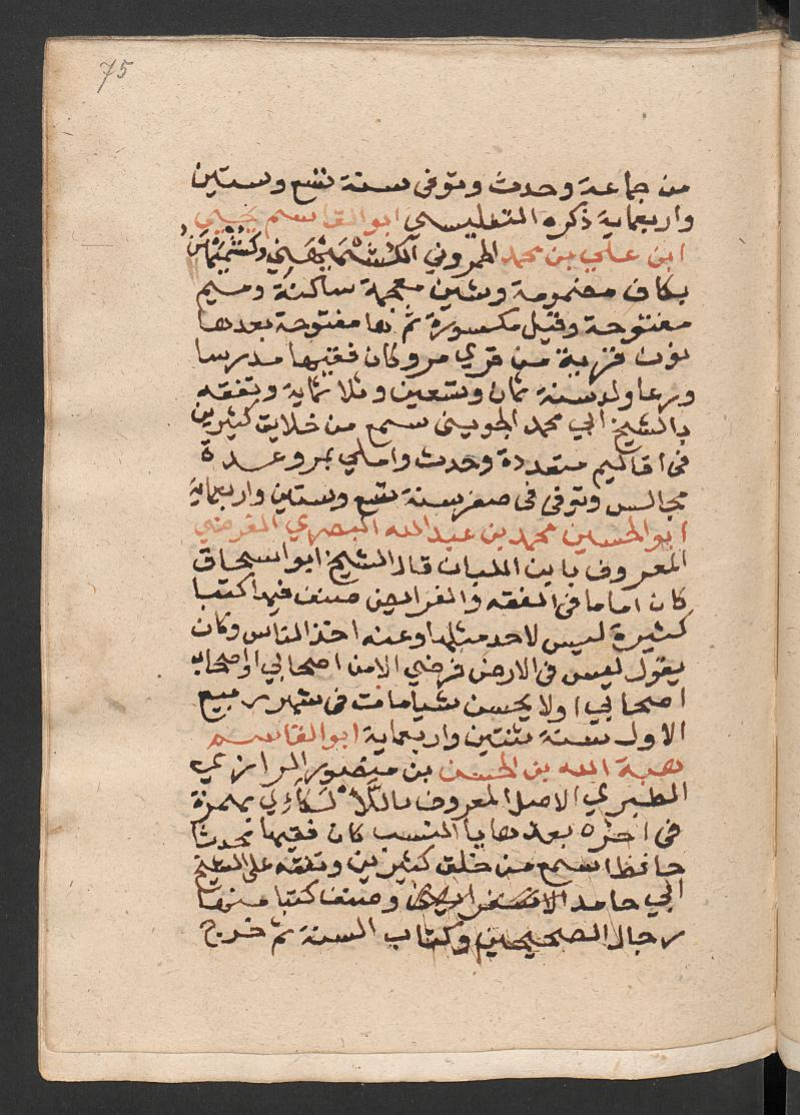 75
من جماعة وحدث وتوفى سنة تسع وستين
واربعماية ذكره التفليسي ابو القاسم يحيى
ابن علي بن محمد الحمروني الكشميهني وكشميهن
بكاف مضمومة وشين معجمة ساكنة وميم
مفتوحة وقيل مكسورة ثم ها مفتوحة بعدها
نون قرية من قري مرو كان فقيها مدرسا
ورعا ولد سنة ثمان وتسعين وثلاثماية وتفقه
بالشيخ ابي محمد الجويني سمع من خلايق كثيرين
فى اقاليم متعددة وحدث واملي بمرو عدة
مجالس وتوفى فى صفر سنة تسع وستين واربعماية
ابو الحسين محمد بن عبد الله البصري الفرضي
المعروف بابن اللبان قال الشيخ ابو اسحاق
كان اماما فى الفقه والفرايض صنف فيها كتبا
كثيرة ليس لاحد مثلها وعنه اخذ الناس وكان
يقول ليس فى الارض فرضي الا من اصحابي او اصحاب
اصحابي او لا يحسن شيا مات فى شهر ربيع
الاول سنة ثنتين واربعماية ابو القاسم
هبة الله بن الحسن بن منصور الرازي
الطبري الاصل المعروف باللالكاءي بهمزة
فى اخره بعدها يا النسب كان فقيها محدثا
حافظا سمع من خلق كثيرين وتفقه على الشيخ
ابي حامد وصنف كتبا منها
رجال الصحيحين وكتاب السنة ثم خرج